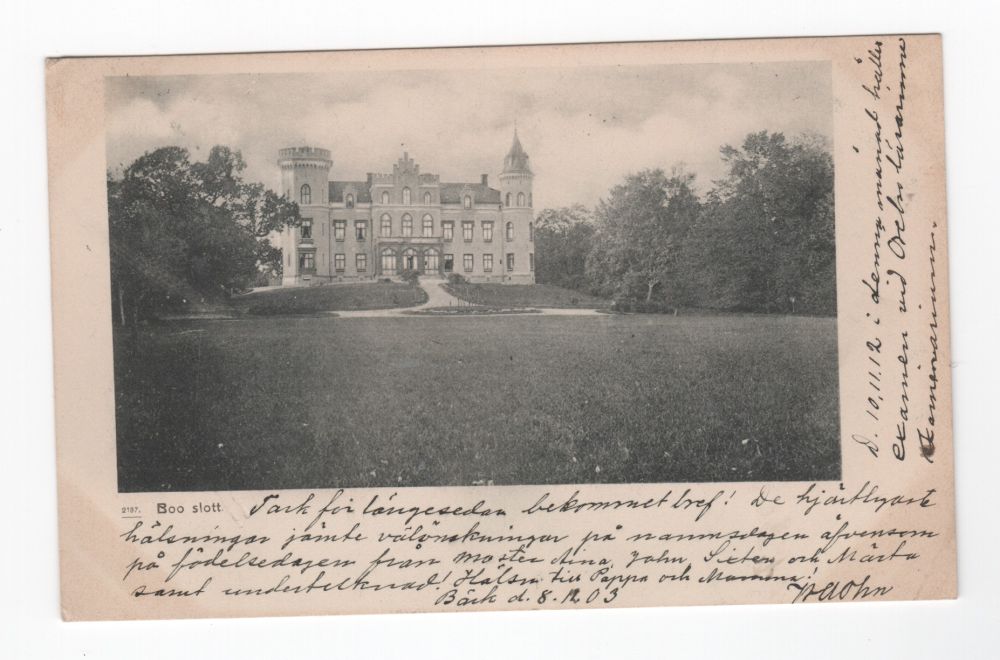 2187. Boo slott. Tack för längesedan bekommet bref! De hjärtligaste
hälsningar jämte välönskningar på namnsdagen äfvensom
på födelsedagen från moster Mina, John, Sixten och Märta
samt undertecknad! Hälsn. till Pappa och Mamma!
Bäck d. 8.12 03
D. 10, 11, 12 i denna månad håller
examen vid Örebro lärarinne